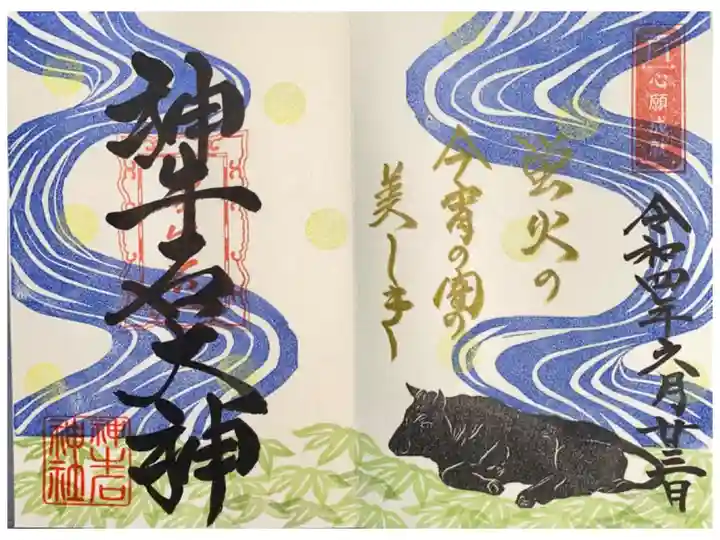 心願成就
令和四年六月廿三日
螢火の
今宵の闇の
美しき
神牛石大神
神社